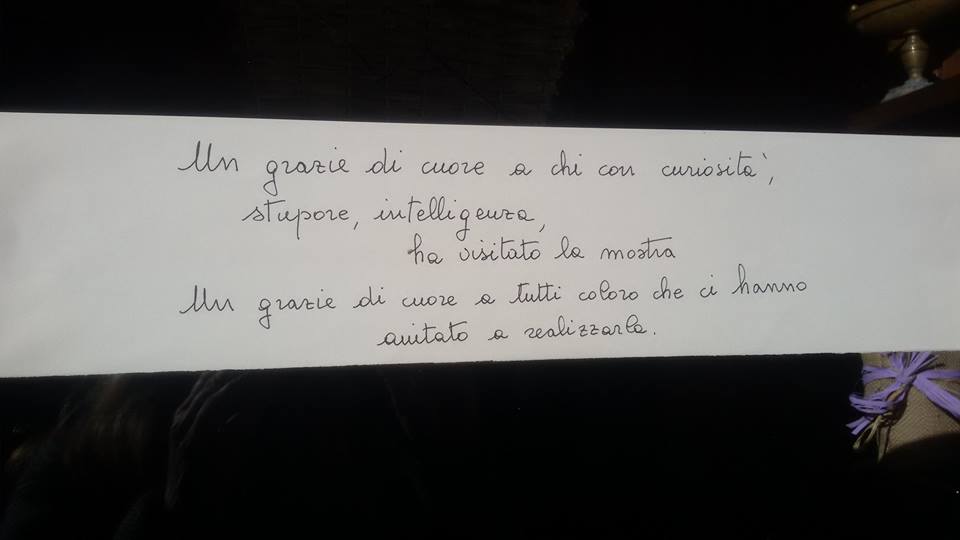 Un grazie di cuore a chi con curiosità,
stupore, intelligenza,
ha visitato la mostra
Un grazie di cuore a tutti coloro che ci hanno
aiutato a realizzarla.